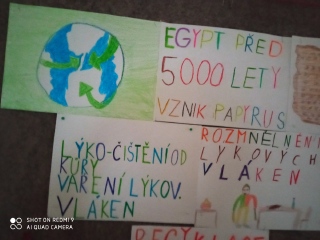 EGYPT PŘED
5000 LETY
VZNIK PAPÝRUS
LÝKO-ČIŠTĚNÍ OD
KŮRY
VAŘENÍ LÝKOV.
VLÁKEN
ROZMNĚLNĚNÍ
LÝKOVÝCH
VLÁKEN
SHOT ON REDMI 9
AI QUAD CAMERA